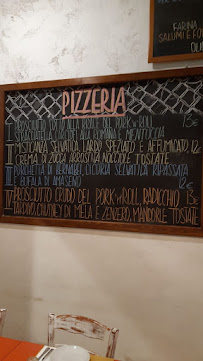 FARINA
SALUMI E FO
OLI
PIZZERIA
I PROSCIUTTO COTTO ALLA PORK 'N' ROLL 13€
ALLA ROMANA E MENTUCCIA
II MISTICANZA SELVATICA, LARDO SPEZIATO E AFFUMICATO 12
CREMA DI ZUCCA ARROSTITA NOCCIOLE TOSTATE
III PORCHETTA DI BERNABEI CICORIA SELVATICA RIPASSATA
E BUFALA DI AMASENO 12€
IV PROSCIUTTO CRUDO DEL PORK 'N' ROLL, RADICCHIO 13€
CHUTNEY DI MELA E ZENZERO, MANDORLE TOSTATE